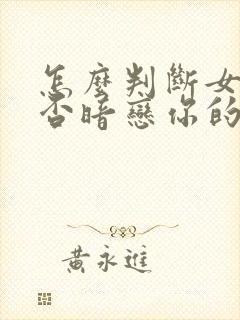 怎麼判斷女
否暗戀你的
黃永進